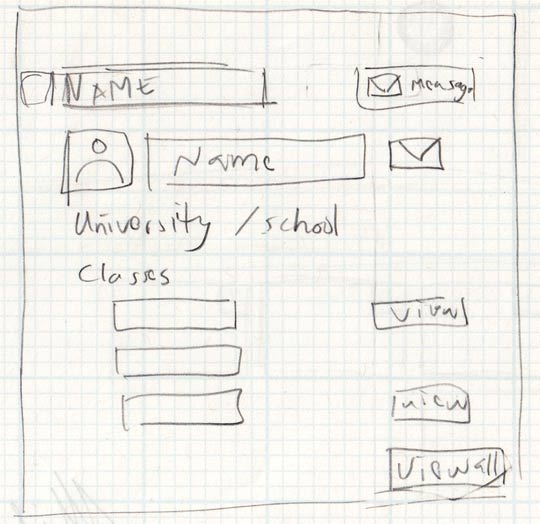 NAME Message
Name
University / school
Classes
View
View
View all